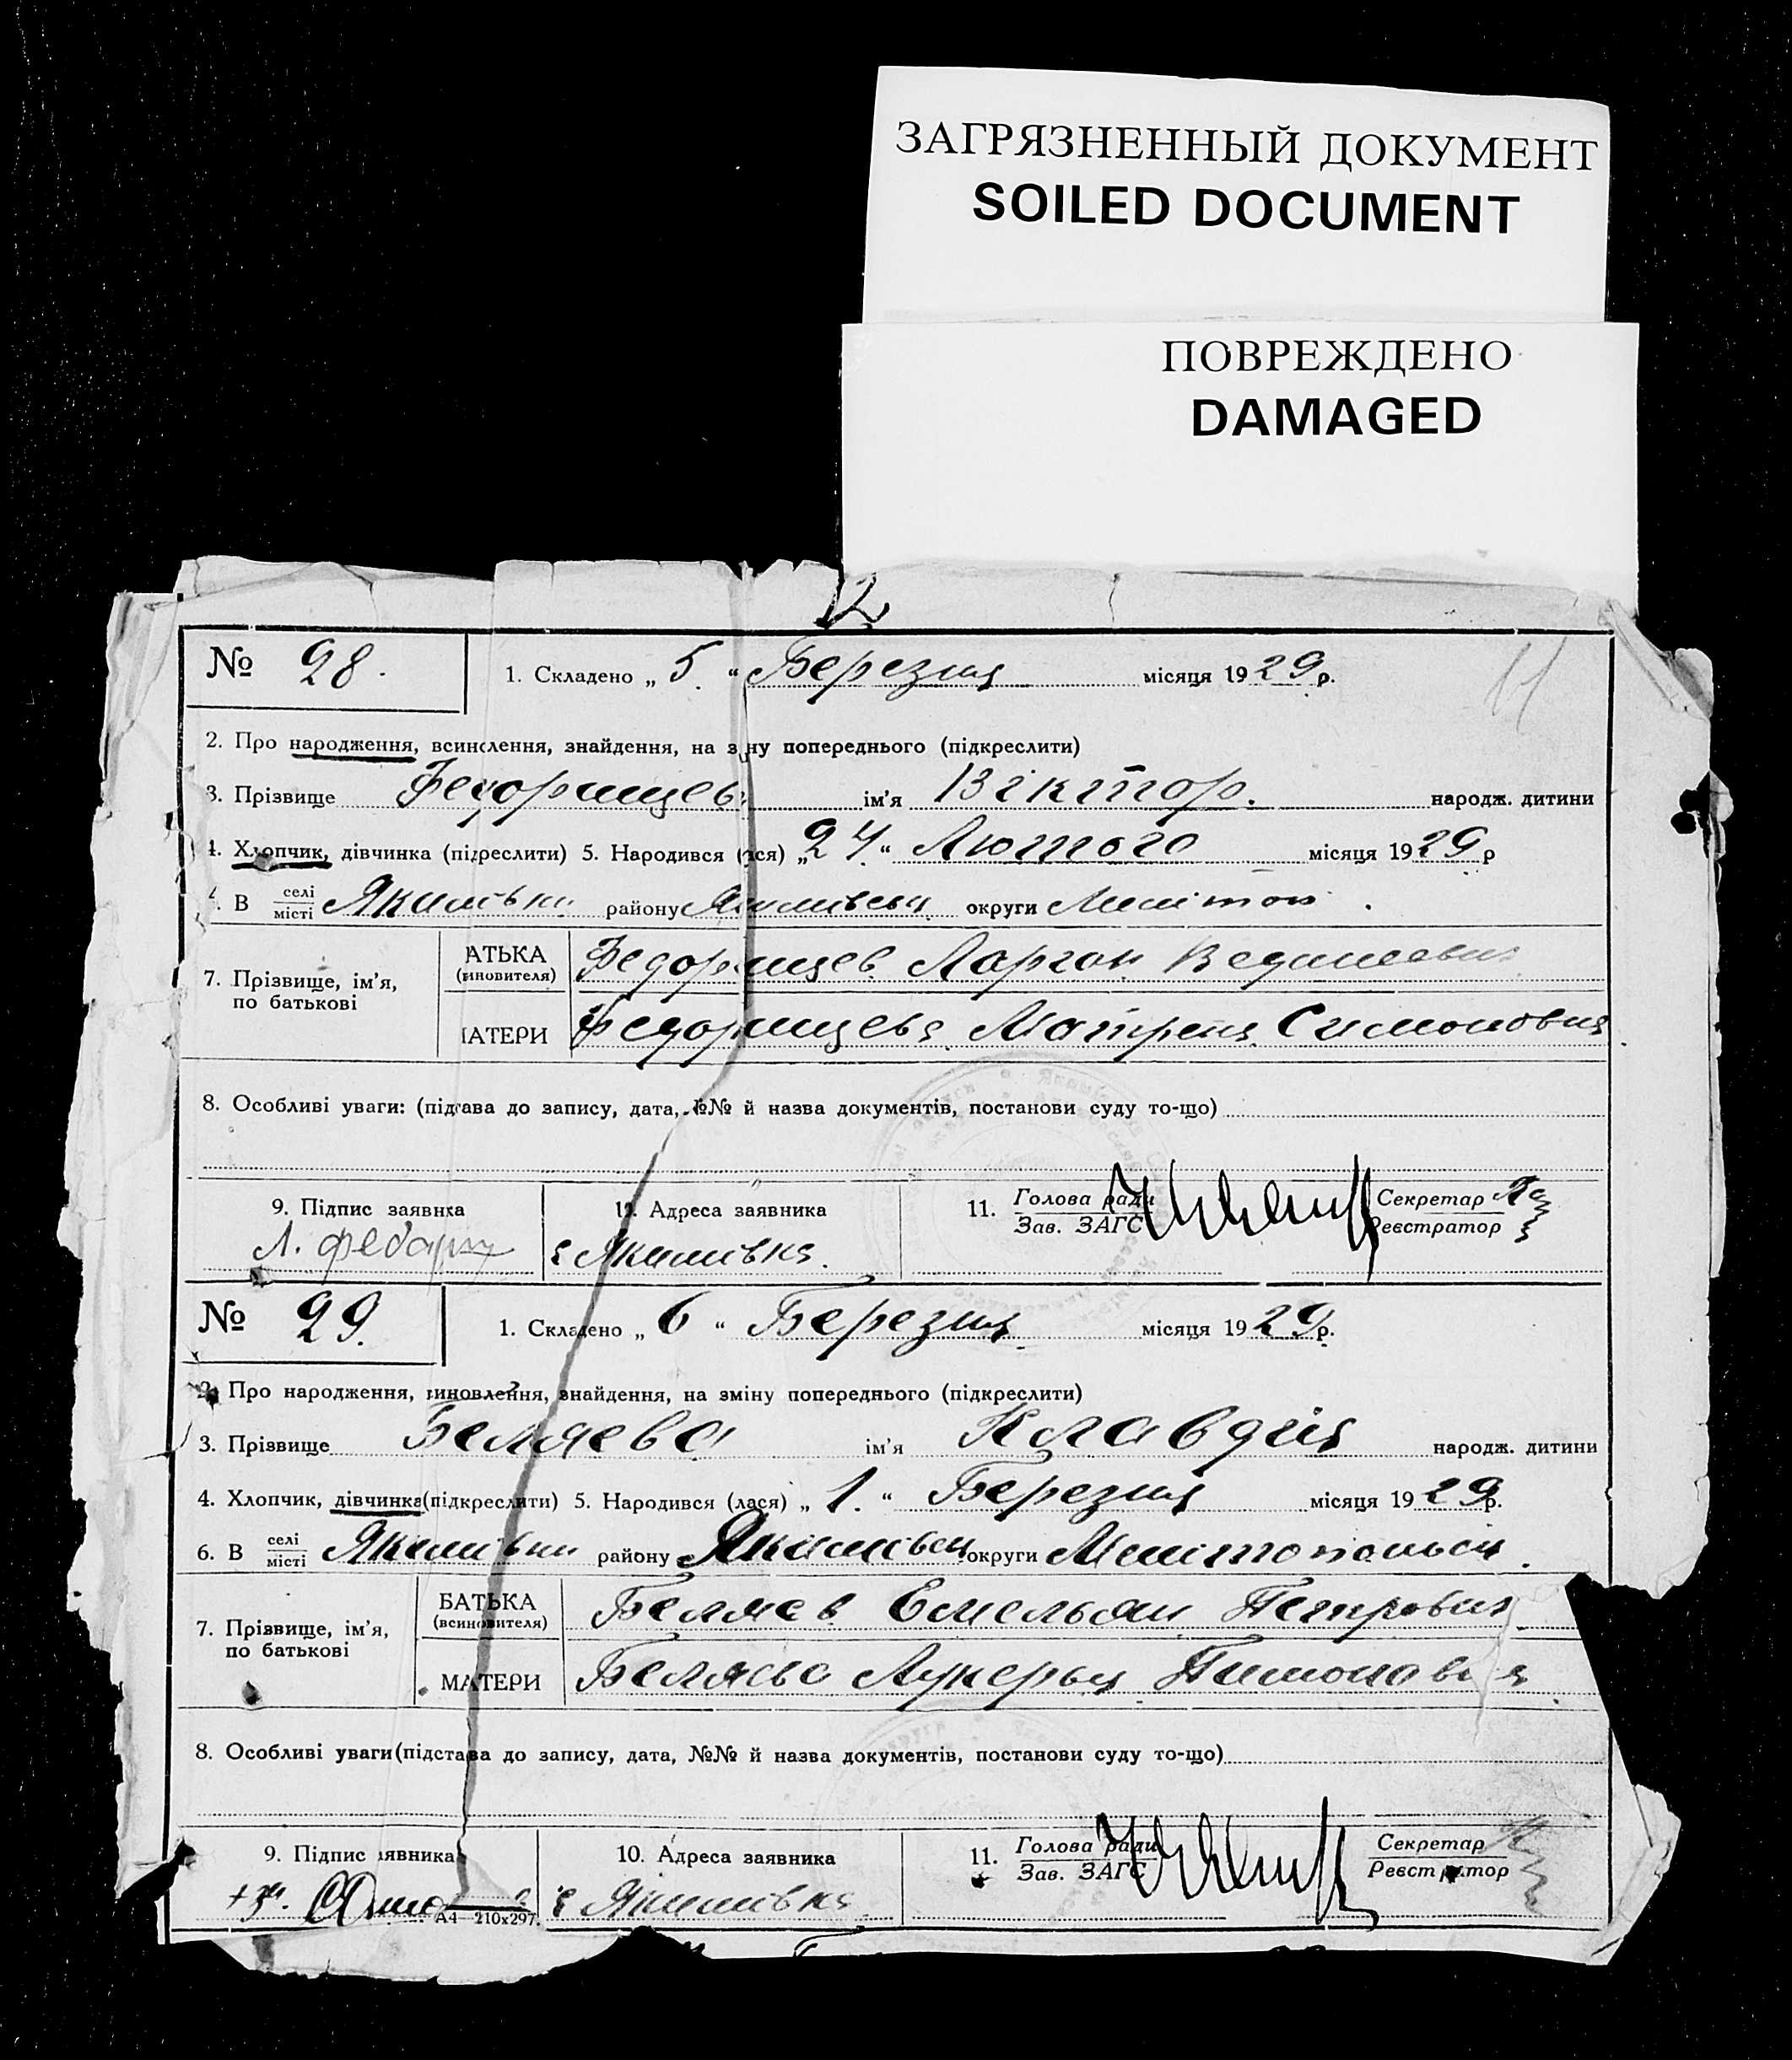 ЗАГРЯЗНЕННЫЙ ДОКУМЕНТ
SOILED DOCUMENT
ПОВРЕЖДЕНО
DAMAGED
12
№ 28. 1. Складено „ 5 “ Березня місяця 1929 р. 11
2. Про народження, всин лення, знайдення, на з ну попереднього (підкреслити)
3. Прізвище ім'я Віктор. народж. дитини
4. Хлопчик, дівчинка (під реслити) 5. Народився ( ся) „ 24 “ Лютого місяця 1929 р
. В селі місті Якимівки району Якимівськ округи Меліто .
7. Прізвище, ім'я, по батькові
АТЬКА (иновителя)
АТЕРИ Матрена Симоновна
8. Особливі уваги: (підстава до запису, дата, №№ й назва документів, постанови суду то-що)
9. Підпис заявника 10. Адреса заявника 11. Голова ради Зав. ЗАГС Секретар Реєстратор
Л. с Якимівка.
№ 29. 1. Складено „ 6 “ Березня місяця 1929 р.
2. Про народження, иновлення, знайдення, на зміну попереднього (підкреслити)
3. Прізвище Беляева ім'я Клавдия народж. дитини
4. Хлопчик, дівчинка (підкреслити) 5. Народився (лася) „ 1. “ Березня місяця 1929 р.
6. В селі місті Якимівки району Якимівськ округи Мелітопольськ.
7. Прізвище, ім'я, по батькові
БАТЬКА (всиновителя) Беляев Емельян Петрович
МАТЕРИ Беляева Лукерья
8. Особливі уваги (підстава до запису, дата, №№ й назва документів, постанови суду то-що)
9. Підпис аявника 10. Адреса заявника 11. Голова ради Зав. ЗАГС Секретар Реєстратор
с Якимівка
А4—210х297.